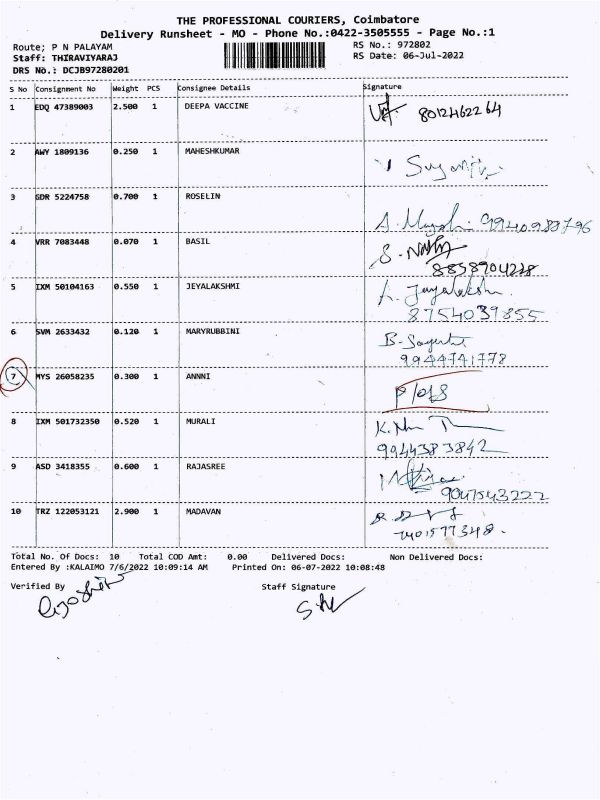 THE PROFESSIONAL COURIERS, Coimbatore
Delivery Runsheet - MO - Phone No.:0422-3505555 - Page No.:1
Route; P N PALAYAM RS No.: 972802
Staff: THIRAVIYARAJ RS Date: 06-Jul-2022
DRS No.: DCJB97280201
S No Consignment No Weight PCS Consignee Details Signature
1 EDQ 47389003 2.500 1 DEEPA VACCINE 8012462264
2 AWY 1809136 0.250 1 MAHESHKUMAR
3 GDR 5224758 0.700 1 ROSELIN
9940988796
4 VRR 7083448 0.070 1 BASIL
8838904228
5 IXM 50104163 0.550 1 JEYALAKSHMI
8754039855
6 SVM 2633432 0.120 1 MARYRUBBINI
9944741778
7 MYS 26058235 0.300 1 ANNNI
8 IXM 501732350 0.520 1 MURALI
9944383842
9 ASD 3418355 0.600 1 RAJASREE
9047543222
10 TRZ 122053121 2.900 1 MADAVAN
Total No. Of Docs: 10 Total COD Amt: 0.00 Delivered Docs: Non Delivered Docs:
Entered By :KALAIMO 7/6/2022 10:09:14 AM Printed On: 06-07-2022 10:08:48
Verified By Staff Signature